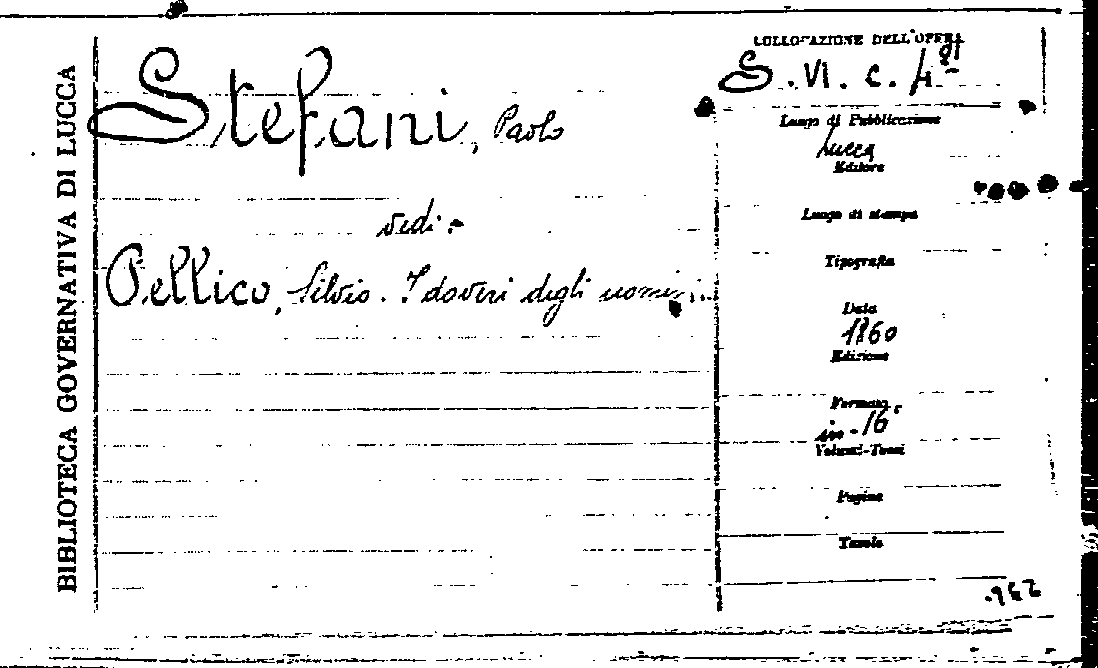 BIBLIOTECA GOVERNATIVA DI LUCCA
Stefani, Paolo
vedi:-
Pellico, Silvio. I doveri degli uomini..
COLLOCAZIONE DELL'OPERA
S. VI. c. 4
Luogo di Pubblicazione
Lucca
Editore
Luogo di stampa
Tipografia
Data
1860
Edizione
Formato
in-16°
Volumi-Tomi
Pagine
Tavole